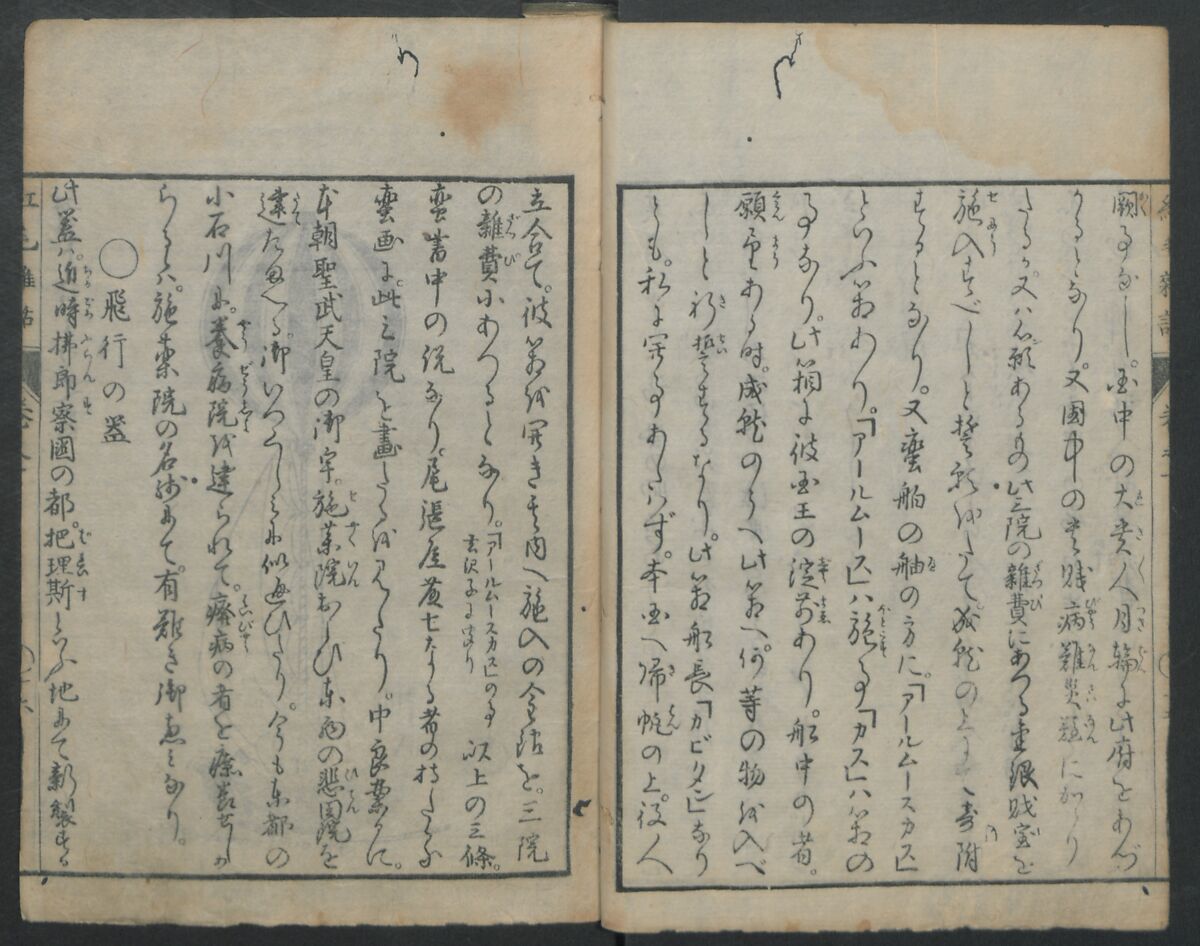 闕事なし。国中の大貴人月輪に此府をあづ
かるとなり。又國中の貴賎病難災難にかゝり
たるか。又ハ心願あるもの此三院の雜費にあつる金銀財宝を
施入すべしと誓願を立て。成就のとき寄附
するとなり。又蛮舶の舳の方に。「アールムースカス」
といふ箱あり。「アールムース」ハ施事「カス」ハ箱の
事なり。此箱に彼国王の錠前あり。船中の者。
願望ある時。成就のうへ此箱へ何等の物を入べ
しと祈誓するなり。此箱船長「カビタン」なり
とも。私に開事あたハず。本国へ帰帆の上。役人
立合て。彼箱を開き其内へ施入の金銀を。三院
の雜費にあつるとなり。「アールムースカス」の事玄沢子に聞り 以上の三條。
蛮書中の説なり。尾張屋廣七なる者の持たる
蛮画に此三院を畫たるを見たり。中良案るに。
本朝聖武天皇の御宇。施薬院および東西の悲田院を
建たまへる。御いつくしみに似通ひたり。今も東都の
小石川に。養病院を建られて。療病の者を療養せしめ
らるゝハ。施薬院の名残にて。有難き御恵ミなり。
○飛行の器
此器ハ近時拂郎察國の都。把理斯といふ地にて新製する